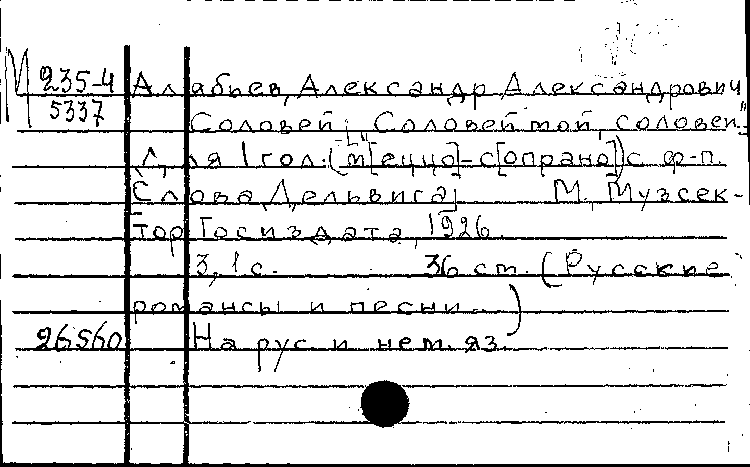 М 235-4 Алябьев, Александр Александрович
5337 Соловей; "Соловей мой, соловей..."
Для 1 гол. (м[еццо]-с[опрано]) с ф-п.
Слова Дельвига; М., Музсек-
тор Госиздата, 1926.
3, 1 с. 36 ст. (Русские
романсы и песни.)
26560 На рус. и нем. яз.